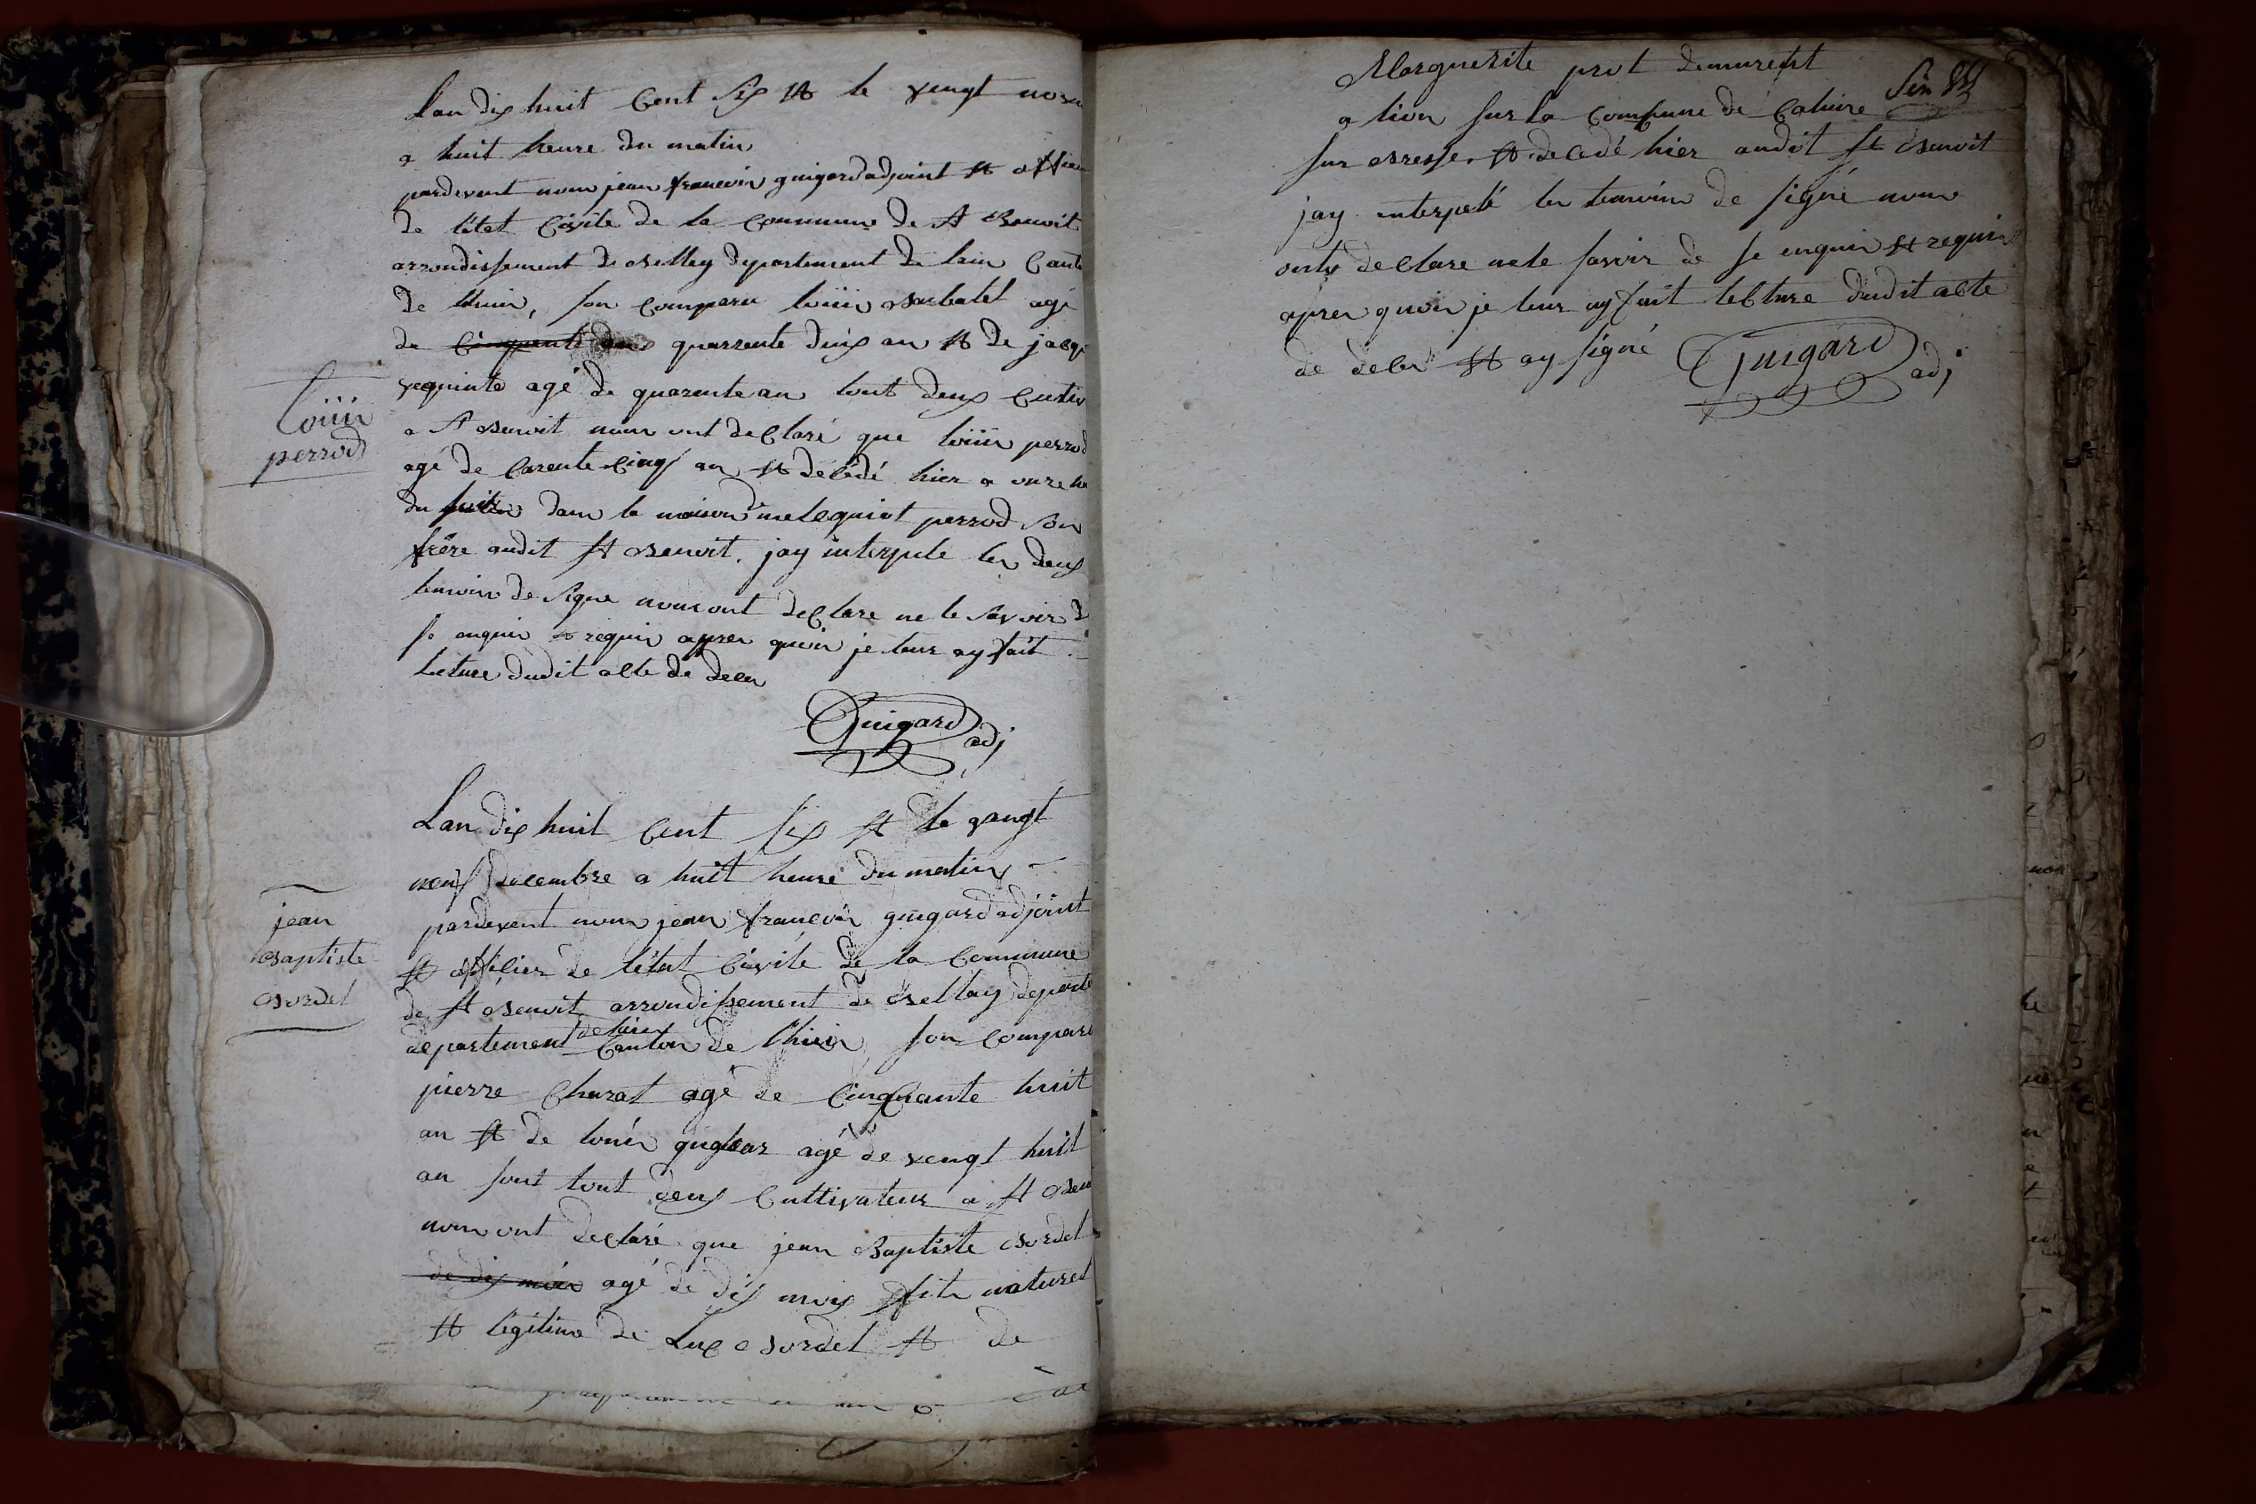 Lan dix huit Cent Six et le vengt nove
a huit heure du matin
pardevent nous jean francois guigard adjoint et offici
de létat Civile de la Commune de st Benoit
arrondissement de Belley departement de lain Canto
de lhuis, son comparu loüis Barbalet agé
de cinquente ans quarrente deux an et de jacqu
vequinte agé de quarente an tout deux Cultiv
a st Benoit nous ont declaré que loüis perrod
agé de Carente Cinq an et décédé hier a onze he
du soir dans la maison de melequiot perrod son
frère audit st Benoit. jay interpele les deux
temoins de signe nous ont declare ne le savoir de
se enquis et requis apres quoi je leur ay fait
lecture dudit acte de deces
Guigard adj
Loüis
perrod
Lan dix huit Cent six et le vangt
neuf decembre a huit heure du matin
pardevent nous jean francois guigard adjoint
et officier de létat Civile de la Commune
de st Benoit arrondissement de Bellay departe
departement de lain Canton de lhuis son Comparu
pierre Charat agé de Cinquante huit
an et de louis guglear agé de vengt huit
an sont tout deux Cultivateur a st Beno
nous ont declaré que jean Baptiste Bordel
de dix mois agé de dix mois fils naturel
et légitime de Luc Bordel et de
jean
Baptiste
Bordel
Marguerite prot demurent
a lion sur la Commune de Caluire
sur Bresse et décédé hier audit st Benoit
jay interpelé les temoins de signé nous
onts declare ne le savoir de se enquis et requis
apres quoi je leur ay fait lecture dudit acte
de deces et ay signé Guigard adj